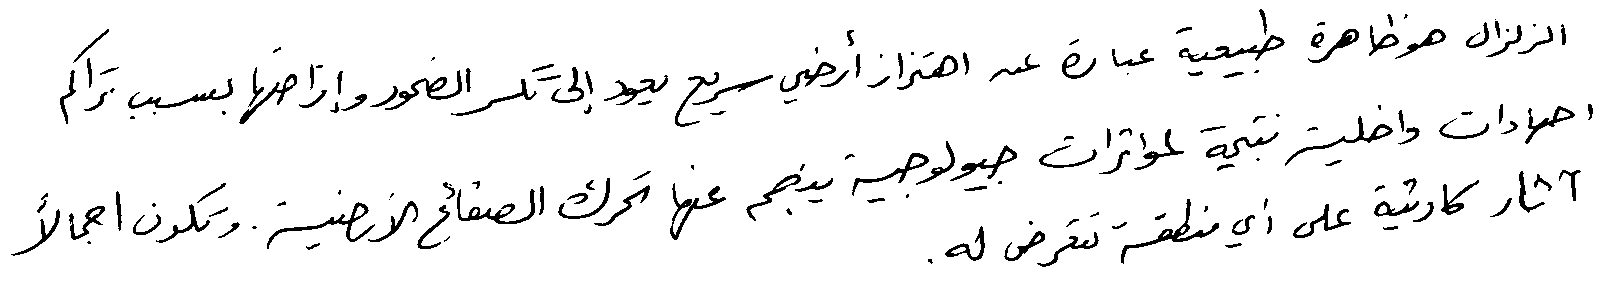 الزلزال هو ظاهرة طبيعية عبارة عن اهتزاز أرضي سريع يعود إلى تكسر الصخور وإزاحتها بسبب تراكم
اجهادات داخلية نتيجة لمؤثرات جيولوجية ينجم عنها تحرك الصفائح الأرضية. وتكون اجمالاً
آثار كارثية على أي منطقة تتعرض له.